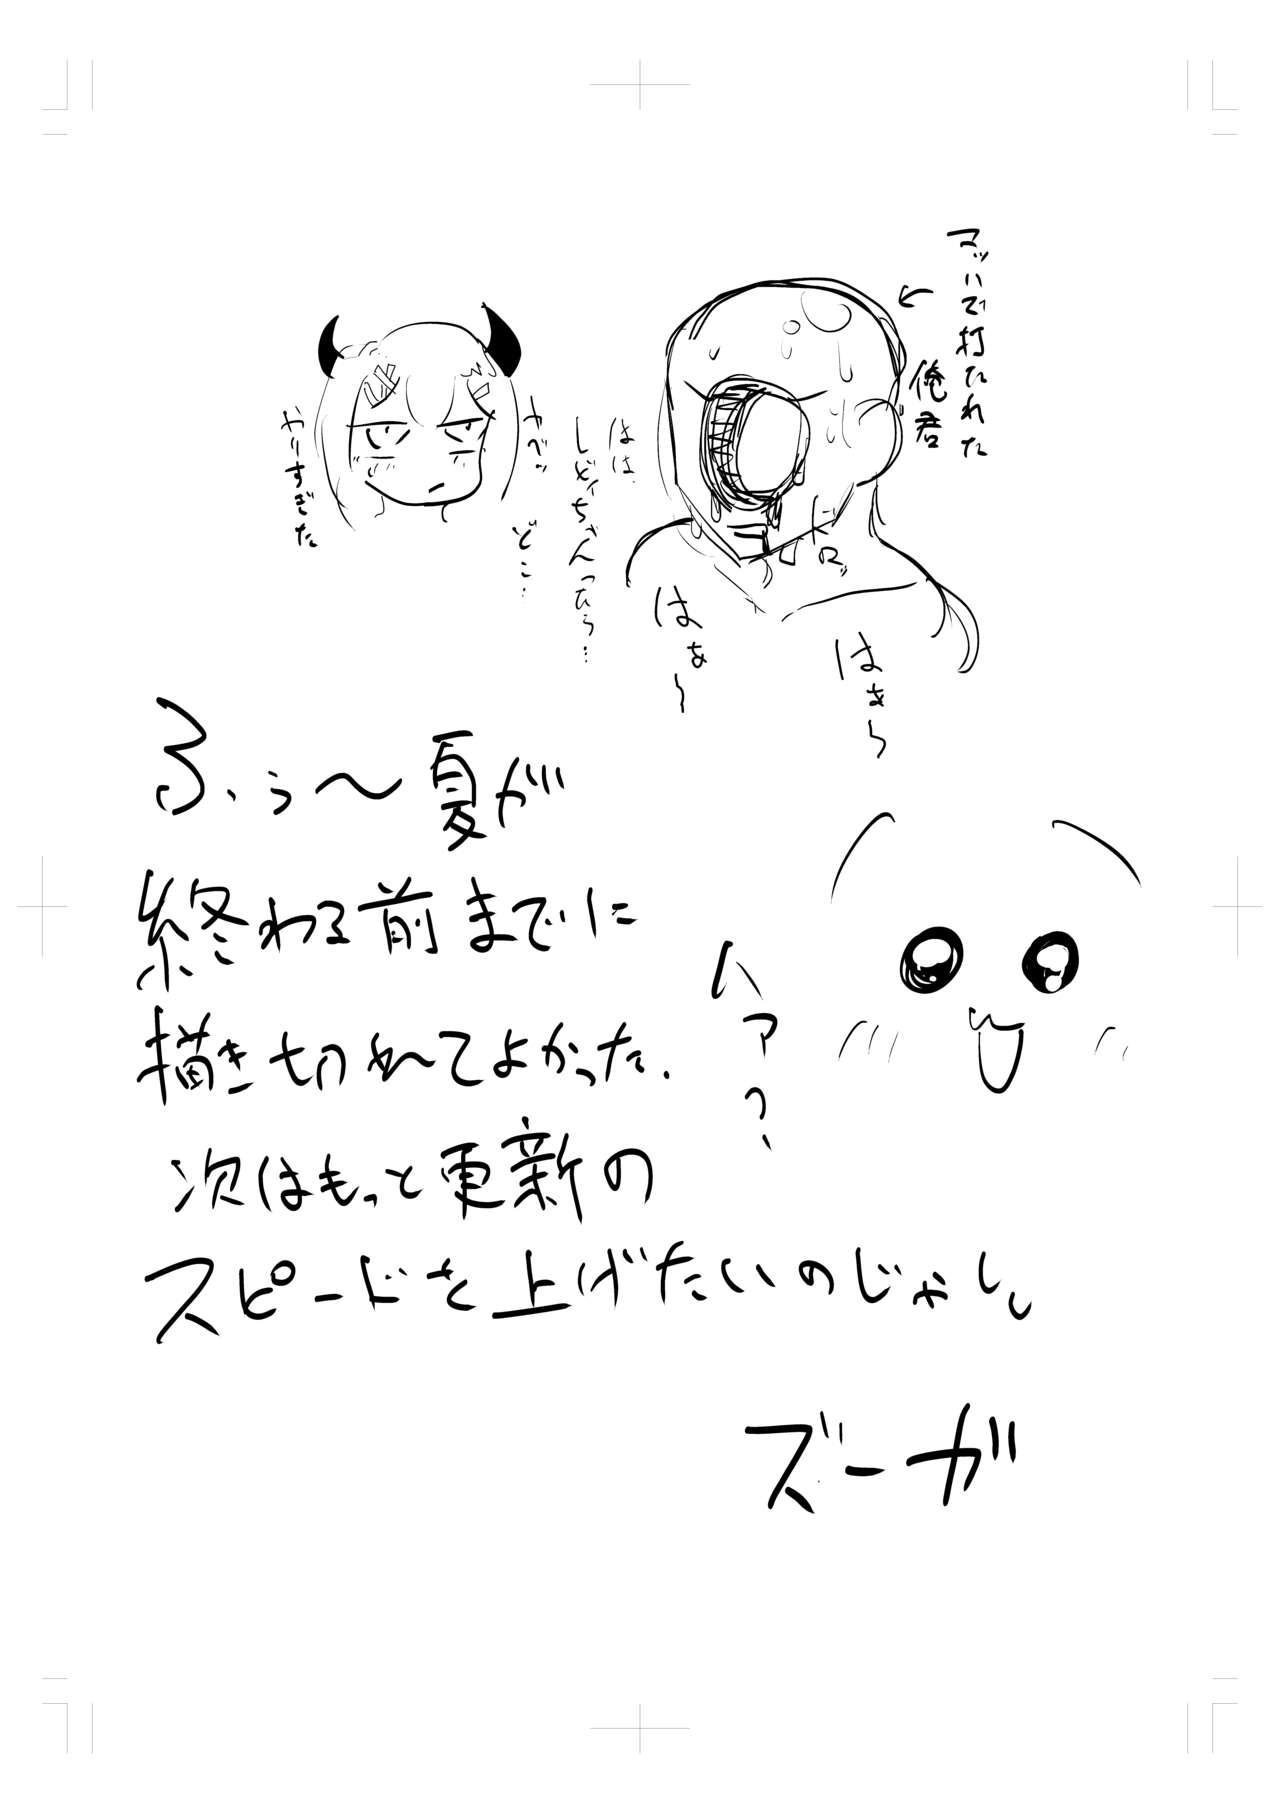 マッハで打たれた
俺君
はは、
しどィちゃんっひら…
どこ…
ヤベッ
やりすぎた
ドロッ
はぁ～
はぁ～
ふぅ～夏が
終わる前までに
描き切れてよかった、
次はもっと更新の
スピードを上げたいのじゃ
ハァっ、
ズーガ